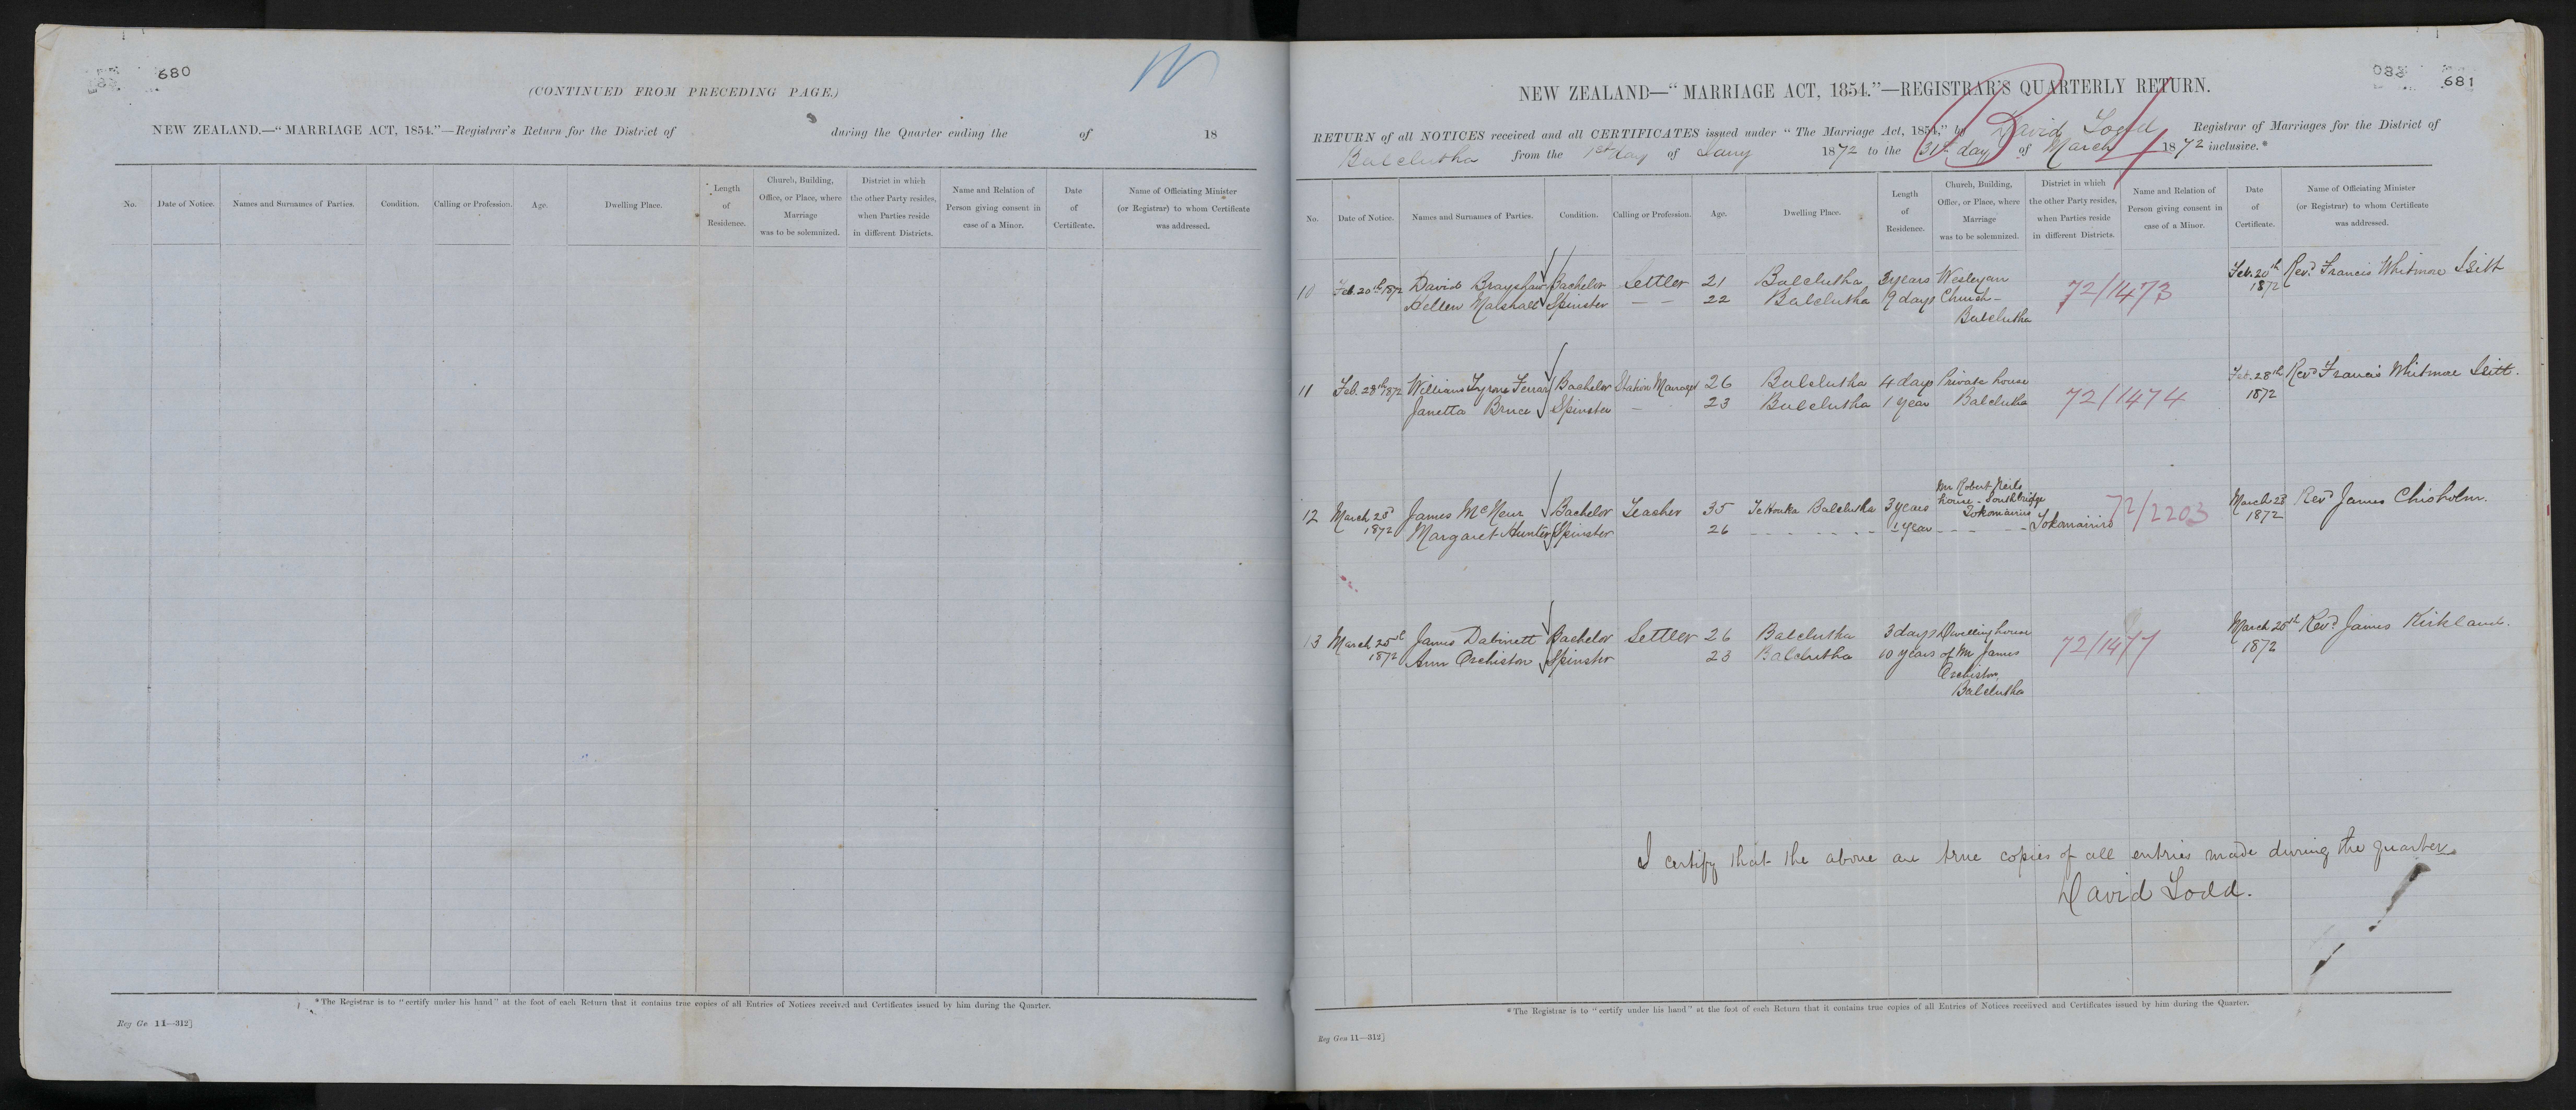 680
(CONTINUED FROM PRECEDING PAGE.)
NEW ZEALAND.—“MARRIAGE ACT, 1854.”—Registrar's Return for the District of during the Quarter ending the of 18
No.
Date of Notice.
Names and Surnames of Parties.
Condition.
Calling or Profession.
Age.
Dwelling Place.
Length
of
Residence.
Church, Building,
Office, or Place, where
Marriage
was to be solemnized.
District in which
the other Party resides,
when Parties reside
in different Districts.
Name and Relation of
Person giving consent in
case of a Minor.
Date
of
Certificate.
Name of Officiating Minister
(or Registrar) to whom Certificate
was addressed.
*The Registrar is to “certify under his hand” at the foot of each Return that it contains true copies of all Entries of Notices received and Certificates issued by him during the Quarter.
Reg Ge 11—312]
681
NEW ZEALAND—“MARRIAGE ACT, 1854.”—REGISTRAR'S QUARTERLY RETURN.
RETURN of all NOTICES received and all CERTIFICATES issued under “The Marriage Act, 1854,” by David Todd Registrar of Marriages for the District of
Balclutha from the 1st day of Jany 1872 to the 31st day of March 1872 inclusive.*
No.
Date of Notice.
Names and Surnames of Parties.
Condition.
Calling or Profession.
Age.
Dwelling Place.
Length
of
Residence.
Church, Building,
Office, or Place, where
Marriage
was to be solemnized.
District in which
the other Party resides,
when Parties reside
in different Districts.
Name and Relation of
Person giving consent in
case of a Minor.
Date
of
Certificate.
Name of Officiating Minister
(or Registrar) to whom Certificate
was addressed.
10 Feb. 20th 1872 David Brayshaw Bachelor Settler 21 Balclutha 3 years Wesleyan 72/1473 Feb. 20th Revd. Francis Whitmore Isitt
Hellen Marshall Spinster — — 22 Balclutha 19 days Church — 1872
Balclutha
11 Feb. 28th 1872 William Tyrone Ferrar Bachelor Station Manager 26 Balclutha 4 days Private house 72/1474 Feb. 28th Revd Francis Whitmore Isitt.
Janetta Bruce Spinster — 23 Balclutha 1 year Balclutha 1872
12 March 23d James McNeur Bachelor Teacher 35 Te Houka Balclutha 3 years Mr Robert Neils 72/2203 March 23 Revd James Chisholm.
house - Southbridge
Tokomairiro
1872 Margaret Hunter Spinster 26 1 year Tokomairiro 1872
13 March 25th James Dabinett Bachelor Settler 26 Balclutha 3 days Dwelling house 72/1477 March 25th Revd. James Kirkland.
1872 Ann Orchiston Spinster 23 Balclutha 10 years of Mr James 1872
Orchiston,
Balclutha
I certify that the above are true copies of all entries made during the quarter.
David Todd.
*The Registrar is to “certify under his hand” at the foot of each Return that it contains true copies of all Entries of Notices received and Certificates issued by him during the Quarter.
Reg Gen 11—312]